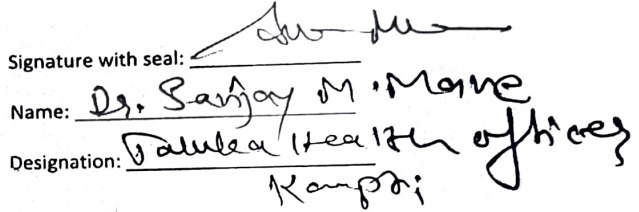 Signature with seal:
Name: Dr. Sanjay M. Mane
Designation: Taluka Health officer